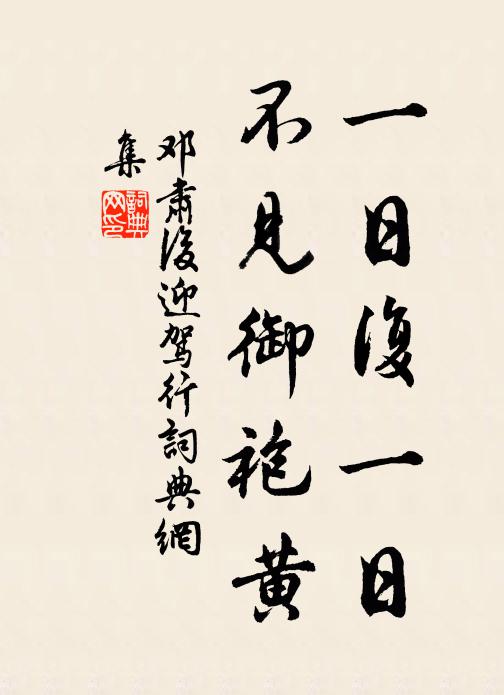 一日復一日
不見御袍黄
邓肅後迎駕行詞典網
集
詞典
网印